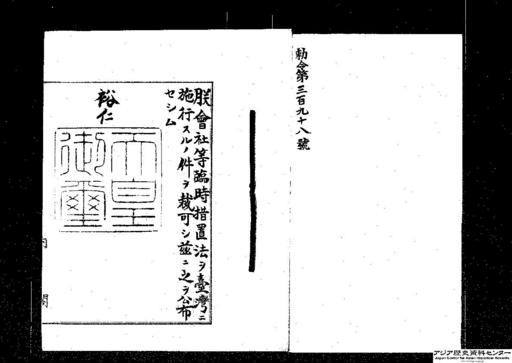 勅令第三百九十八號
朕會社等臨時措置法ヲ臺灣ニ
施行スルノ件ヲ裁可シ茲ニ之ヲ公布
セシム
裕仁
天皇
御璽
内
閣
アジア歴史資料センター
Japan Center for Asian Historical Records